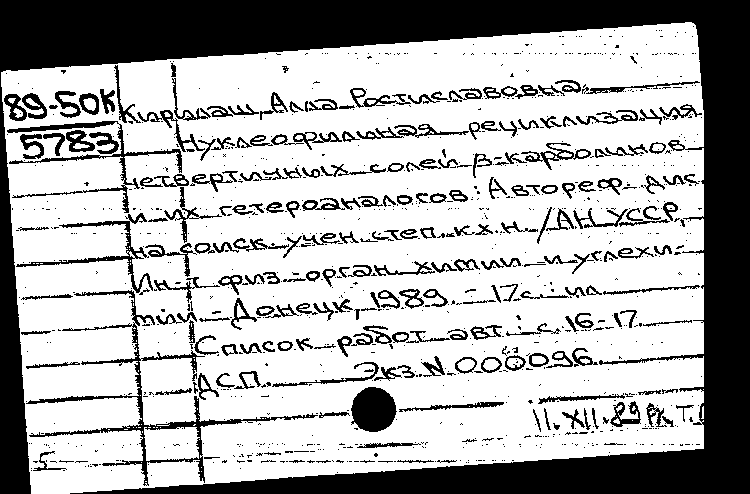 89-50К
5783
Кирилаш, Алла Ростиславовна.
Нуклеофильная рециклизация
четвертичных солей β-карболинов
и их гетероаналогов: Автореф. дис.
на соиск. учен. степ. к.х.н. /АН УССР,
Ин-т физ.-орган. химии и углехи-
мии. - Донецк, 1989. - 17с.: ил.
Список работ авт.: с. 16-17.
ДСП. Экз. N 000096.
11.XII.89
5